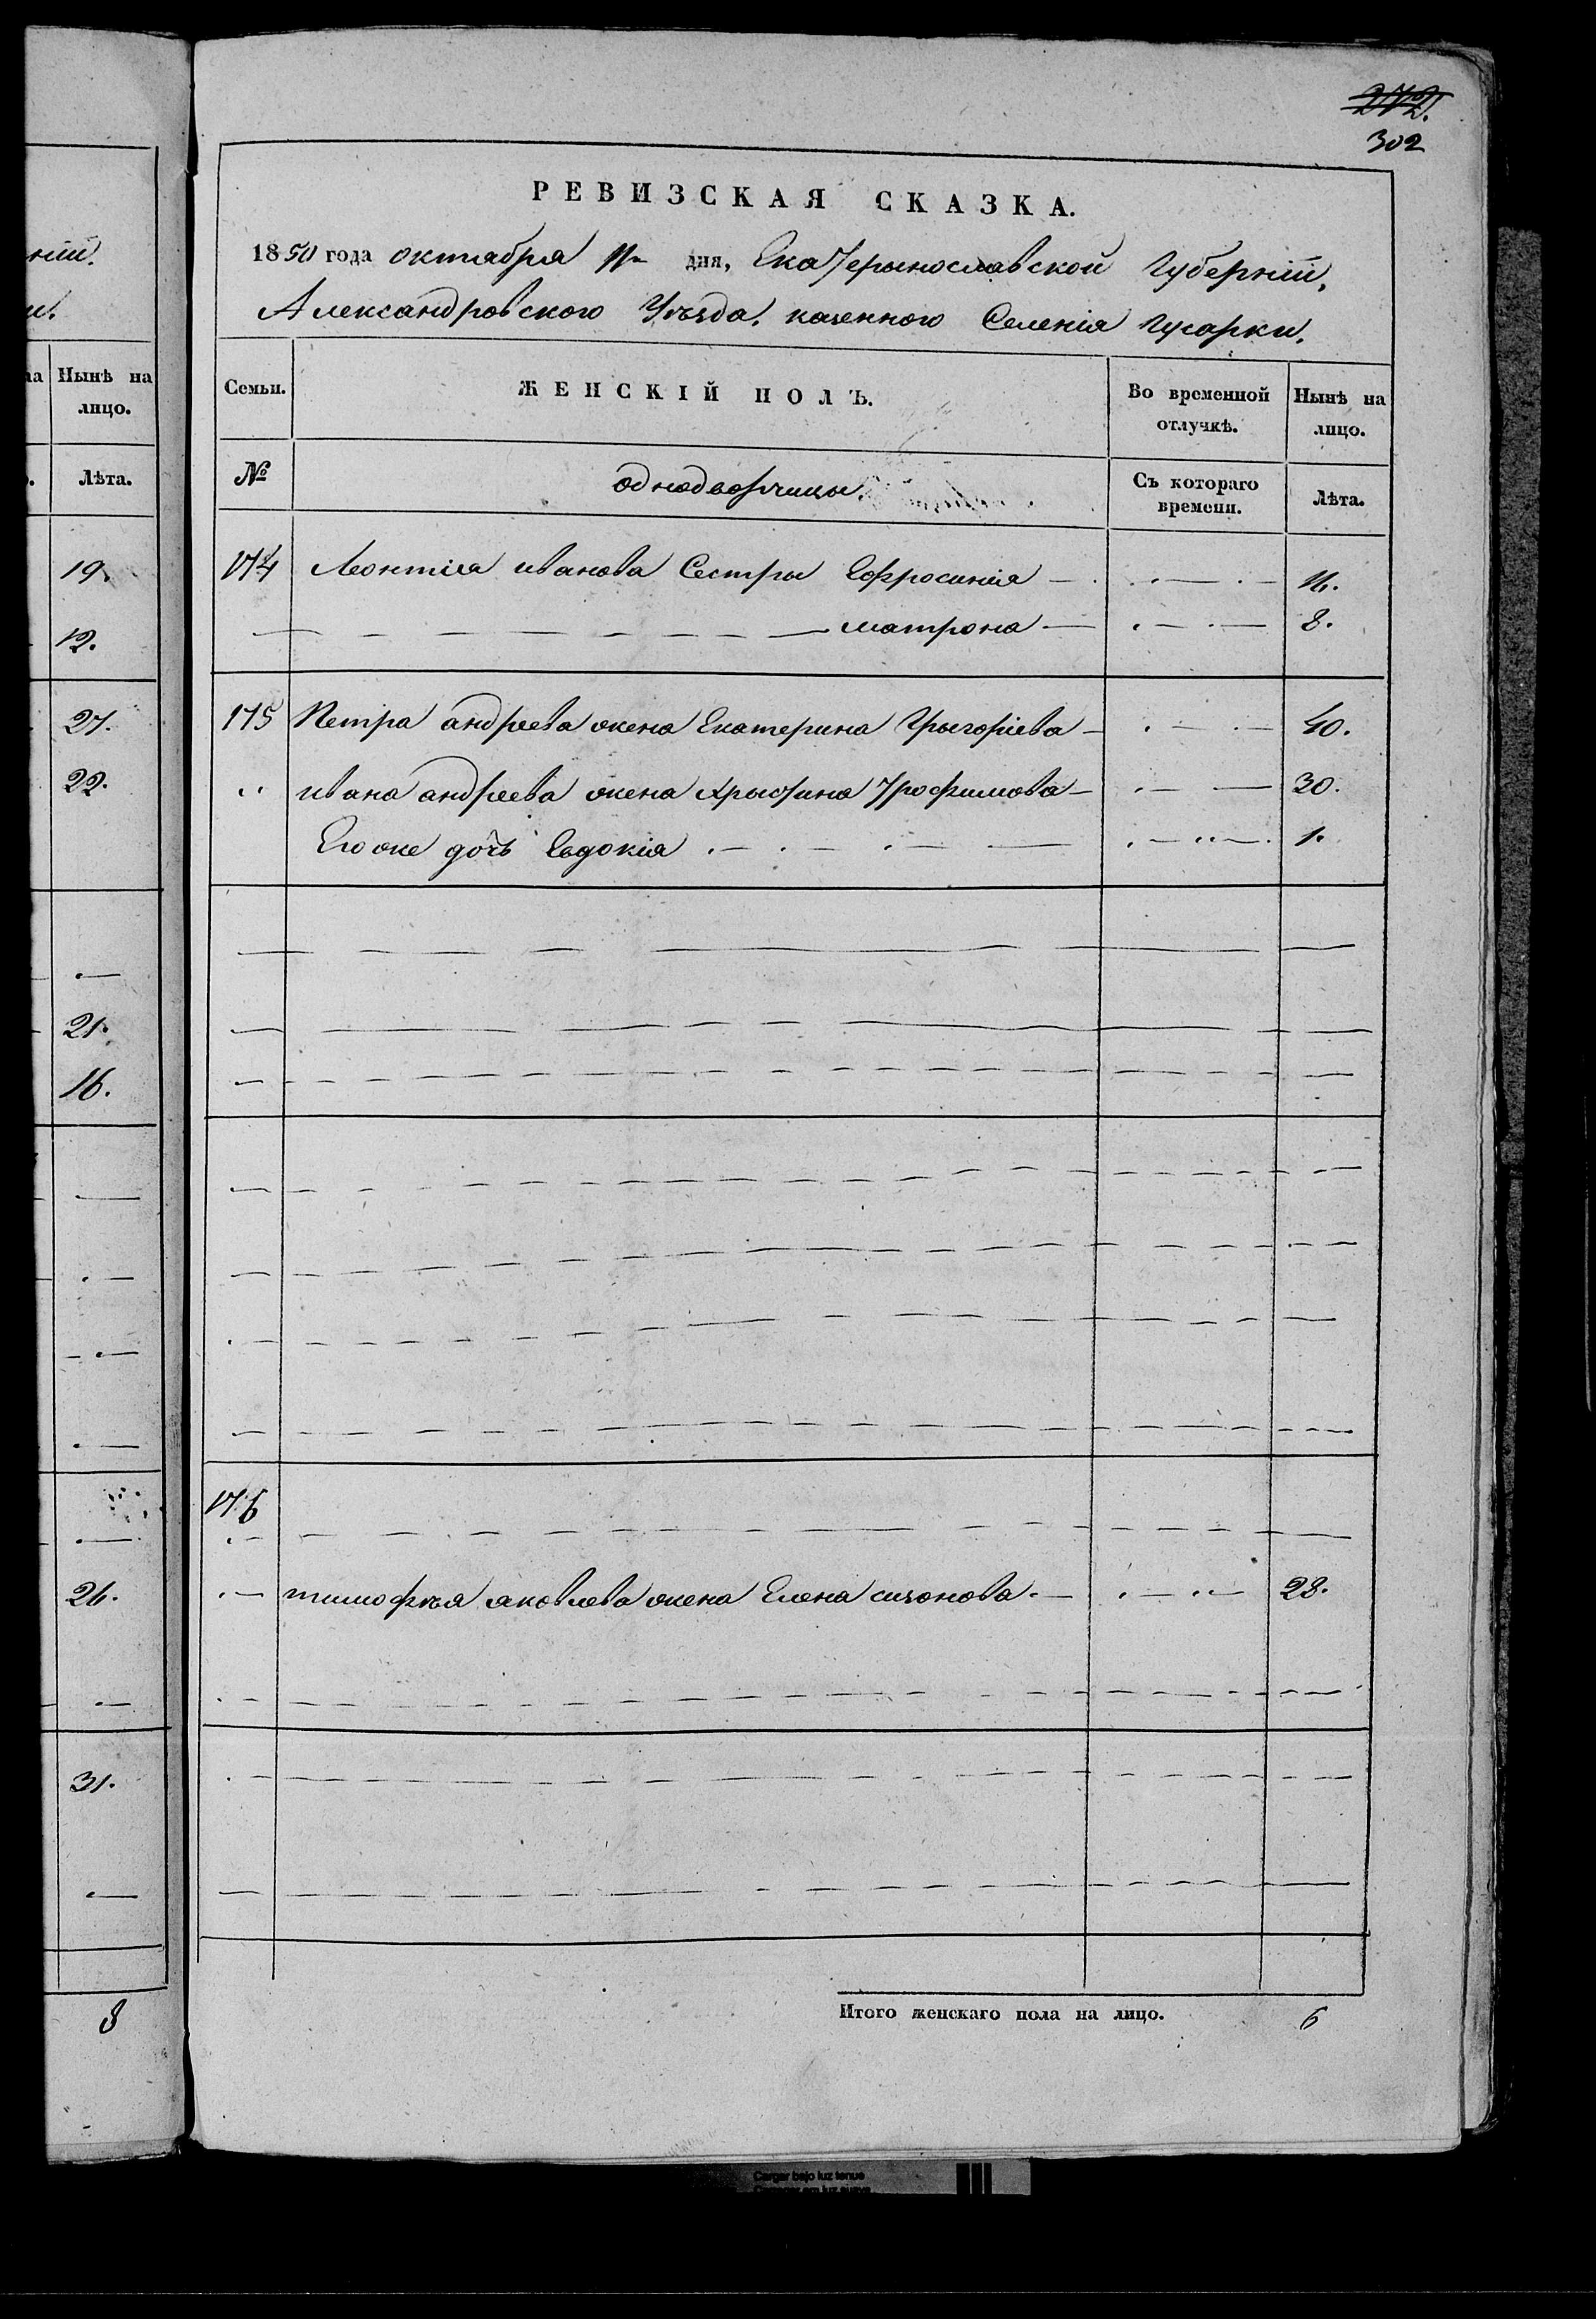 272.
302
РЕВИЗСКАЯ СКАЗКА.
1850 года октября 11 дня, Екатерынославской Губерніи,
Александровского Уѣзда. казенного Селенія Гусарки.
ній.
и.
на Нынѣ на лицо.
Лѣта.
19.
12.
27.
22.
21.
16.
26.
31.
8
Семьи. ЖЕНСКІЙ ПОЛЪ. Во временной отлучкѣ. Нынѣ на лицо.
№ однодворчицы. Съ котораго времени. Лѣта.
174 Леонтія иванова Сестры Ефросинія — 11.
матрона — 8.
175 Петра андреева жена Екатерина Григоріева — 40.
ивана андреева жена Хрыстина Трофимова — 30.
Его же дочь Евдокія — 1.
176
тимофѣя яковлева жена Елена сизонова. — 28.
Итого женскаго пола на лицо. 6
Cargar bajo luz tenue